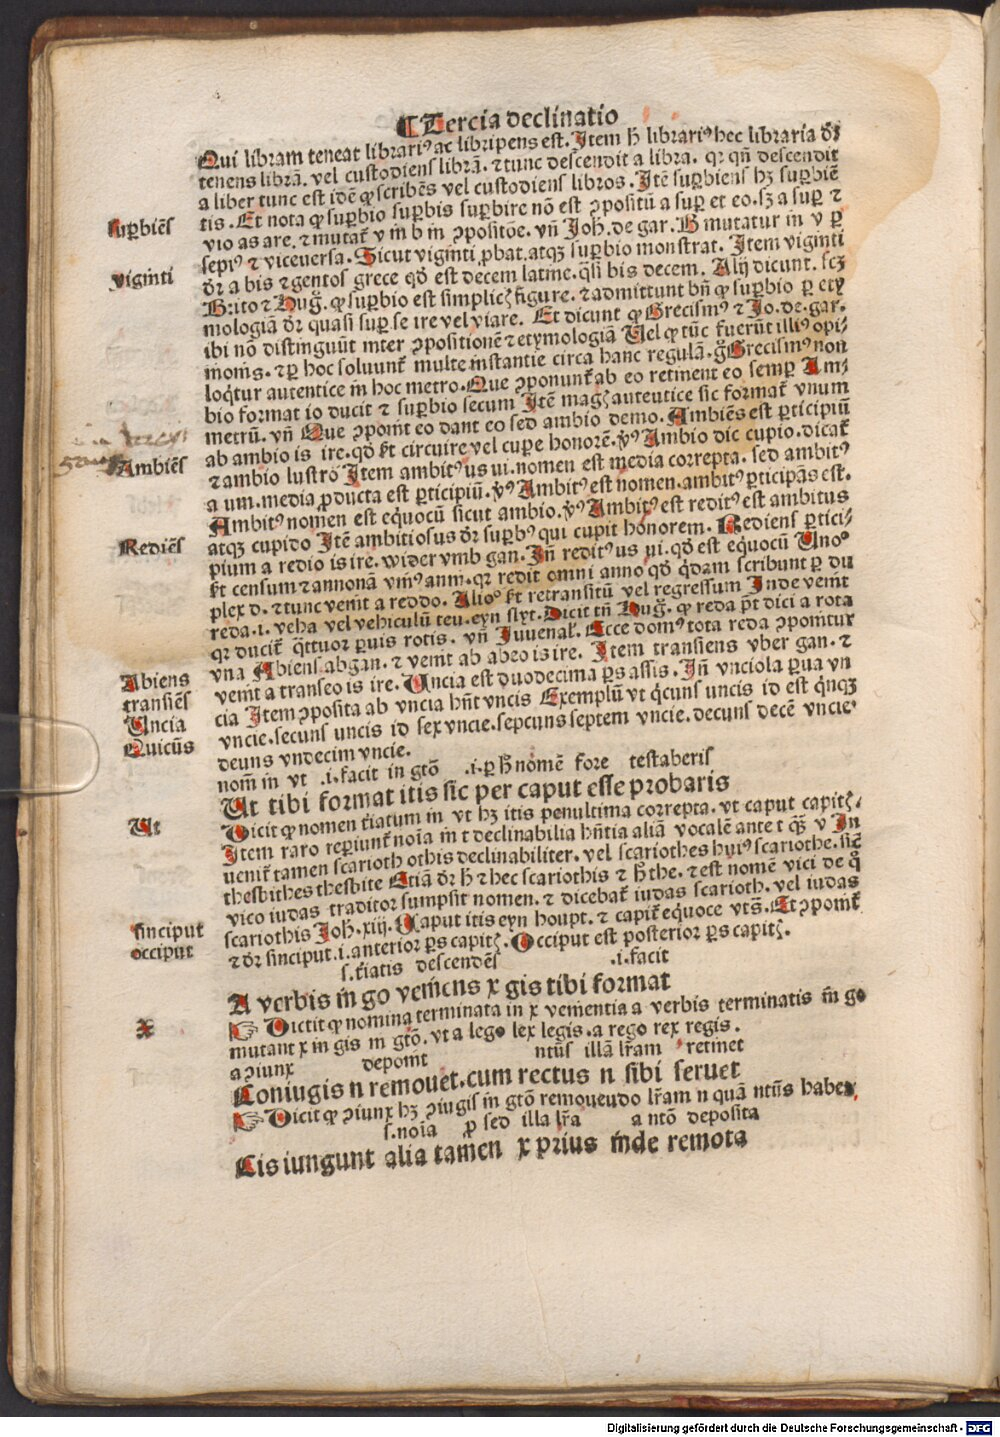 ¶ Tercia declinatio
Qui libram teneat librariꝰ ac libripens est. Item hͦ librariꝰ hec libraria dr̄
tenens librā. vel custodiens librā. ⁊ tunc descendit a libra. qr qn̄ descendit
a liber tunc est idē qꝭ scribēs vel custodiens libros. Itē suꝑbiens hꝫ suꝑbiē
tis. Et nota ꝙ suꝑbio suꝑbis suꝑbire nō est ꝯpositū a suꝑ et eo. sꝫ a suꝑ ⁊
suꝑbiēs
vio as are. ⁊ mutat̄ v in b in ꝯpositōe. vn̄ Joh̄. de gar. B mutatur in v ꝑ
sepiꝰ ⁊ viceversa. Sicut viginti ꝓbat. atqꝫ suꝑbio monstrat. Item viginti
viginti
dr̄ a bis ⁊ gentos grece qd̄ est decem latine. qsi bis decem. Alij dicunt. scꝫ
Brito ⁊ Huḡ. ꝙ suꝑbio est simplicꝭ figure. ⁊ admittunt bn̄ ꝙ suꝑbio ꝑ ety
mologiā dr̄ quasi suꝑ se ire vel viare. Et dicunt ꝙ Grecismꝰ ⁊ Jo. de. gar.
ibi nō distinguūt inter ꝯpositionē ⁊ etymologiā Vel ꝙ tūc fuerūt illiꝰ opi⸗
monis. ⁊ ꝑ hoc soluunt̄ multe instantie circa hanc regulā. ḡ Grecismꝰ non
loqt̄ur autentice in hoc metro. Que ꝯponunt̄ ab eo retinent eo semꝑ Am⸗
bio format io ducit ⁊ suꝑbio secum Itē magꝭ autentice sic format̄ vnum
metrū. vn̄ Que ꝯponit eo dant eo sed ambio demo. Ambiēs est ꝑticipiū
ab ambio is ire. qd̄ s̄t circuire vel cuꝑe honorē. v̄ꝰ Ambio dic cupio. dicat̄
Ambiēs
⁊ ambio lustro Item ambitꝰ us ui. nomen est media correpta. sed ambitꝰ
a um. media ꝓducta est ꝑticipiū. v̄ꝰ Ambitꝰ est nomen. ambitꝰ ꝑticipās est.
Ambitꝰ nomen est eq̄uocū sicut ambio. v̄ꝰ Ambitꝰ est reditꝰ est ambitus
atqꝫ cupido Itē ambitiosus dr̄ suꝑbꝰ qui cupit honorem. Rediens ꝑtici⸗
Rediēs
pium a redio is ire. wider vmb gan. Jn̄ reditꝰ us ui. qd̄ est eq̄uocū Vnoº
s̄t censum ⁊ annonā vniꝰ anni. qr redit omni anno qd̄ q̄dam scribunt ꝑ du
plex d. ⁊ tunc venit a reddo. Alioº s̄t retransitū vel regressum Inde venit
reda. i. veha vel vehiculū teu. eyn slyt. Dicit tn̄ Huḡ. ꝙ reda pt̄ dici a rota
qr ducit̄ q̄ttuor ꝑuis rotis. vn̄ Juuenal̄. Ecce domꝰ tota reda ꝯponitur
vna Abiens abgan. ⁊ venit ab abeo is ire. Item transiens vber gan. ⁊
Abiens
venit a transeo is ire. Uncia est duodecima ꝑs assis. Jn̄ vnciola ꝑua vn
transiēs
cia Item ꝯposita ab vncia hn̄t vncis Exemplū vt q̄cuns uncis id est q̄nqꝫ
Uncia
vncie. secuns uncis id sex vncie. sepcuns septem vncie. decuns decē vncie.
Quicūs
deuns vndecim vncie.
nom̄ in vt .i. facit in gtō .i. ꝑ hͦ nomē fore testaberis
Ut tibi format itis sic per caput esse probaris
Ut
Dicit ꝙ nomen t̄iatum in vt hꝫ itis penultima correpta. vt caput capitꝭ.
Item raro reꝑiunt̄ noīa in t declinabilia hn̄tia aliā vocalē ante t qꝫ̄ v In
uenit̄ tamen scarioth othis declinabiliter. vel scariothes huiꝰ scariothe. sic̄
thesbithes thesbite Etiā dr̄ hͦ ⁊ hec scariothis ⁊ hͦ the. ⁊ est nomē vici de q̊
vico iudas traditor sumpsit nomen. ⁊ dicebat̄ iudas scarioth. vel iudas
scariothis Joh̄. xiij. Caput itis eyn houpt. ⁊ capit̄ eq̄uoce vts̄. Et ꝯponit̄
sinciput
⁊ dr̄ sinciput. i. anterior ꝑs capitꝭ. Occiput est posterior ꝑs capitꝭ.
occiput
s. t̄iatis descendēs .i. facit
A verbis in go veniens x gis tibi format
☞ Dictit ꝙ nomina terminata in x venientia a verbis terminatis in go
x
mutant x in gis in gtō. vt a lego lex legis. a rego rex regis.
a ꝯiunx deponit ntūs illā lr̄am retinet
Coniugis n remouet. cum rectus n sibi seruet
☞ Dicit ꝙ ꝯiunx hꝫ ꝯiugis in gtō remouendo lr̄am n quā ntūs habet
s. noīa ꝓ sed illa lr̄a a ntō deposita
Cis iungunt alia tamen x prius inde remota
Digitalisierung gefördert durch die Deutsche Forschungsgemeinschaft - DFG